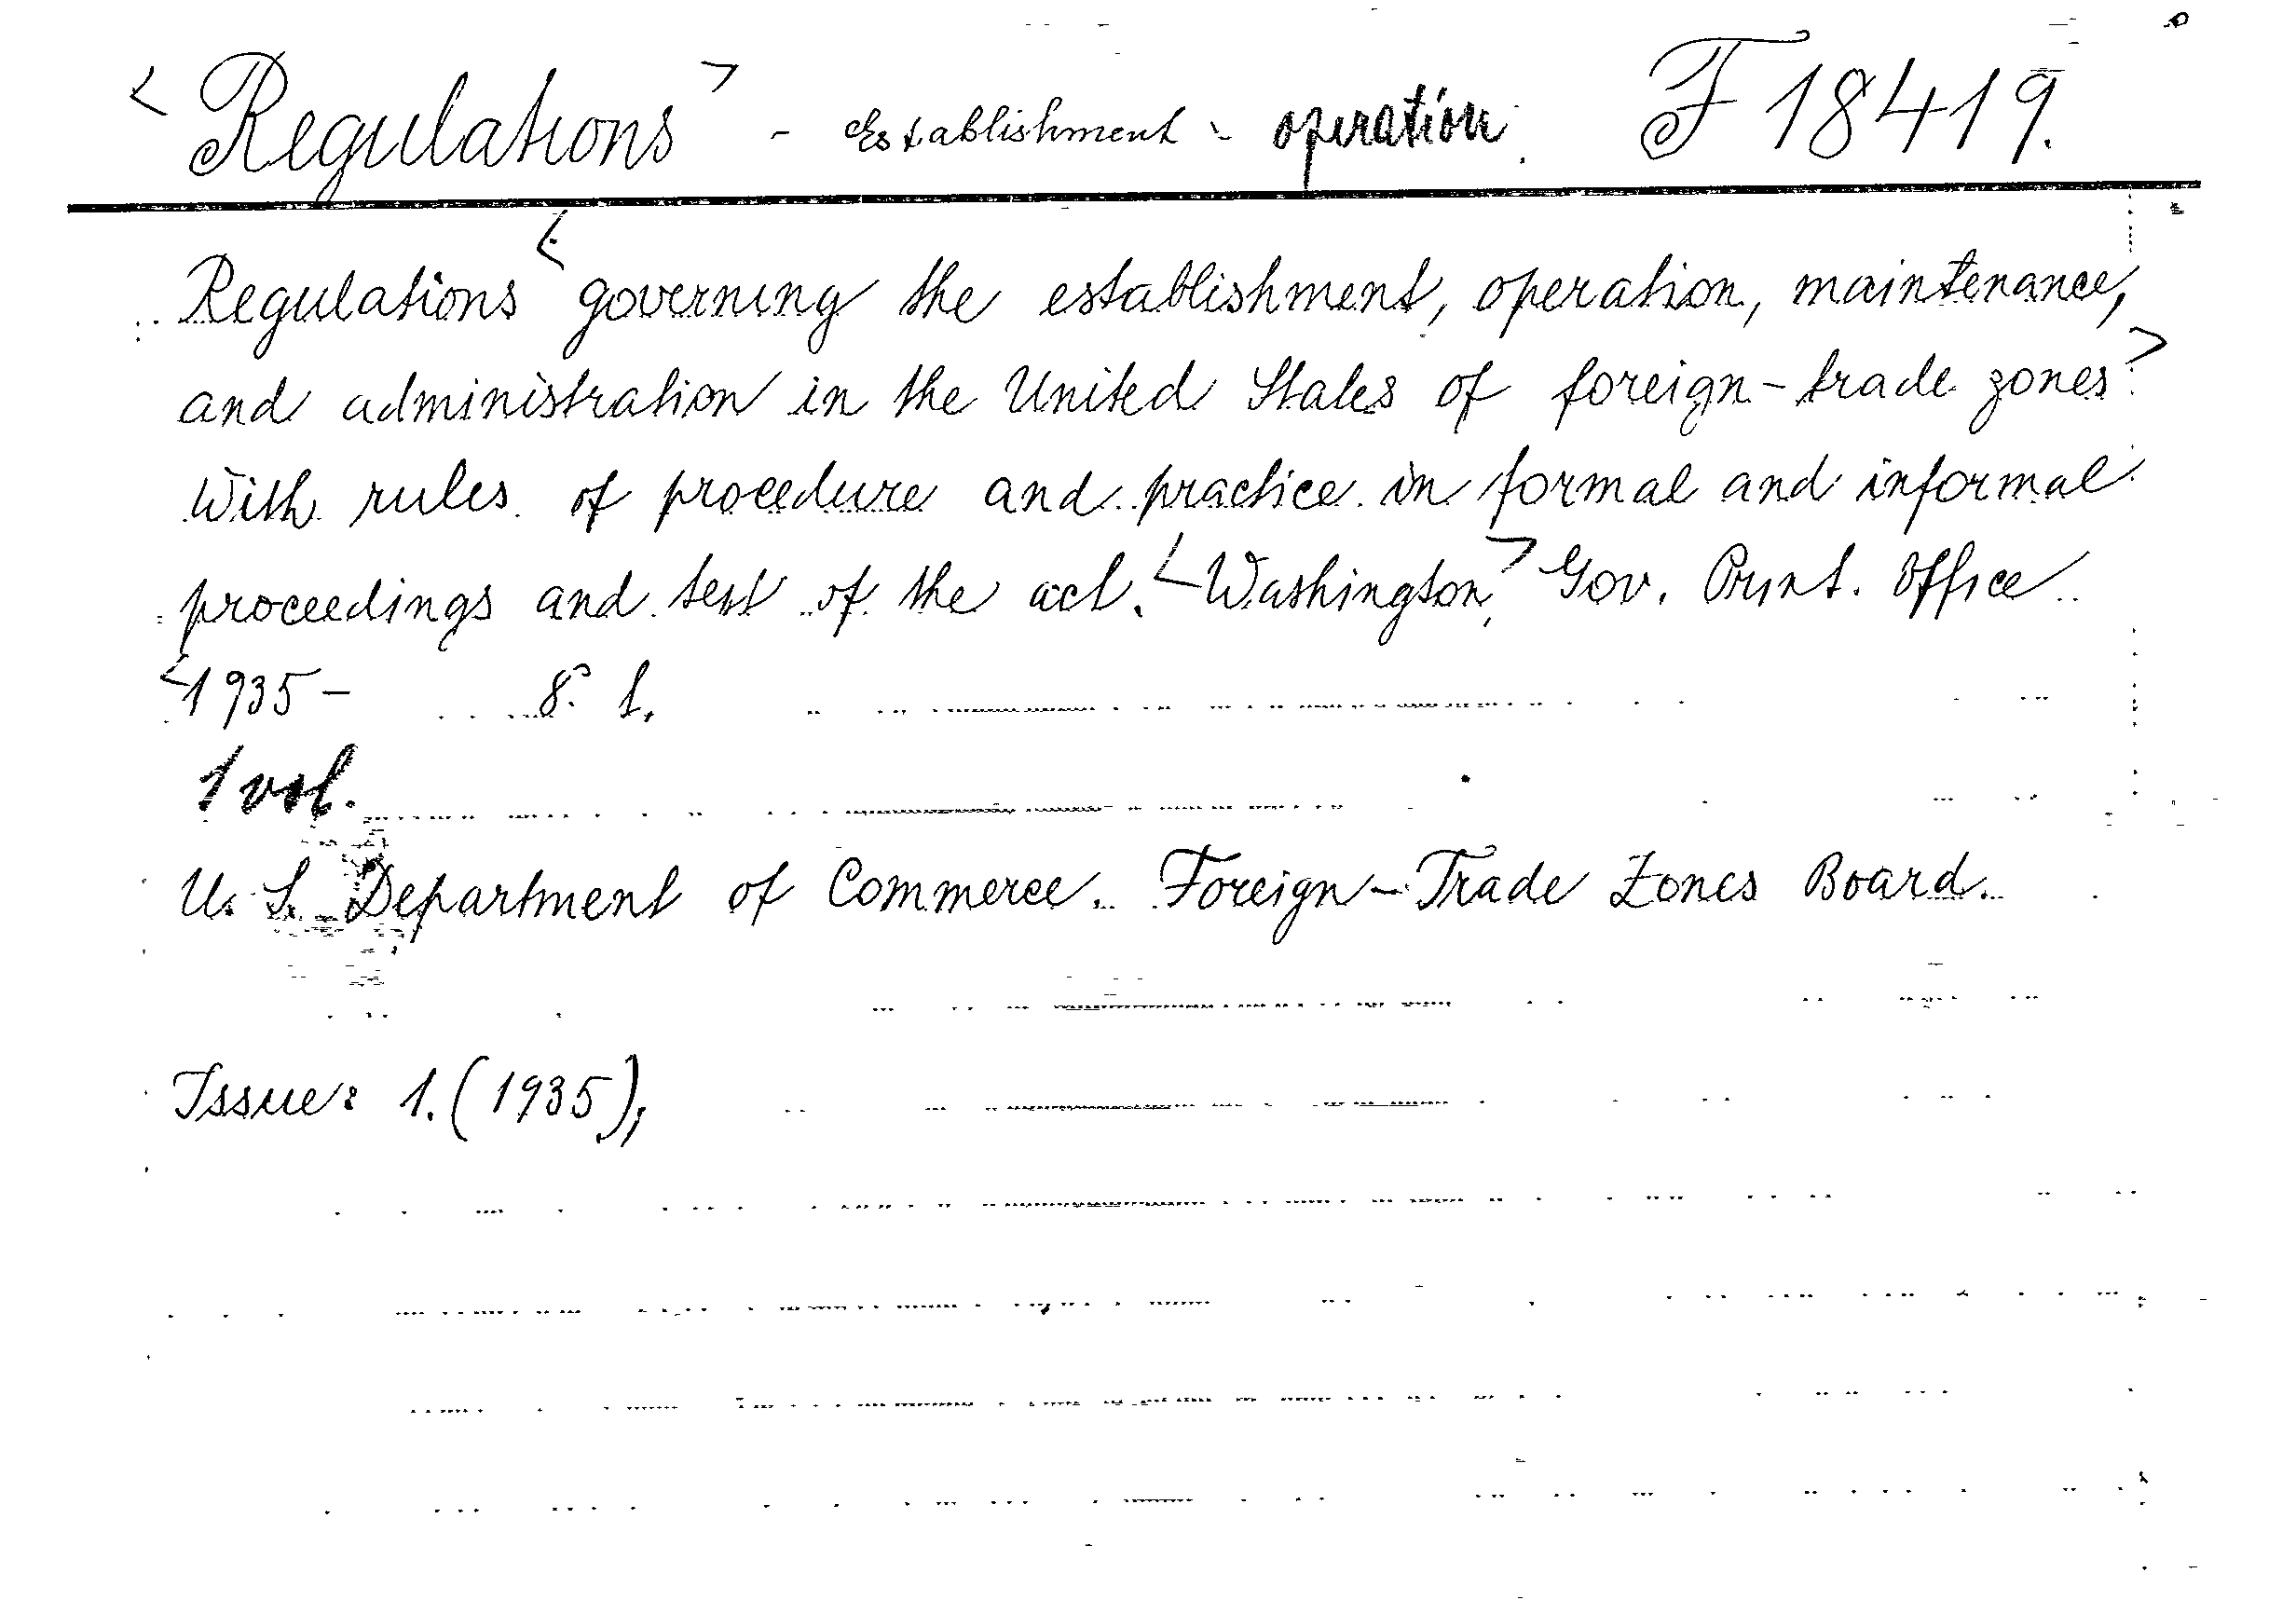 <Regulations> - Establishment - operation. F 18419.
Regulations <governing the establishment, operation, maintenance,
and administration in the United States of foreign-trade zones>
With rules of procedure and practice in formal and informal
proceedings and text of the act. <Washington,> Gov. Print. Office
<1935- 8° t.
1 vol.
U. S. Department of Commerce. Foreign-Trade Zones Board.
Issue: 1. (1935),